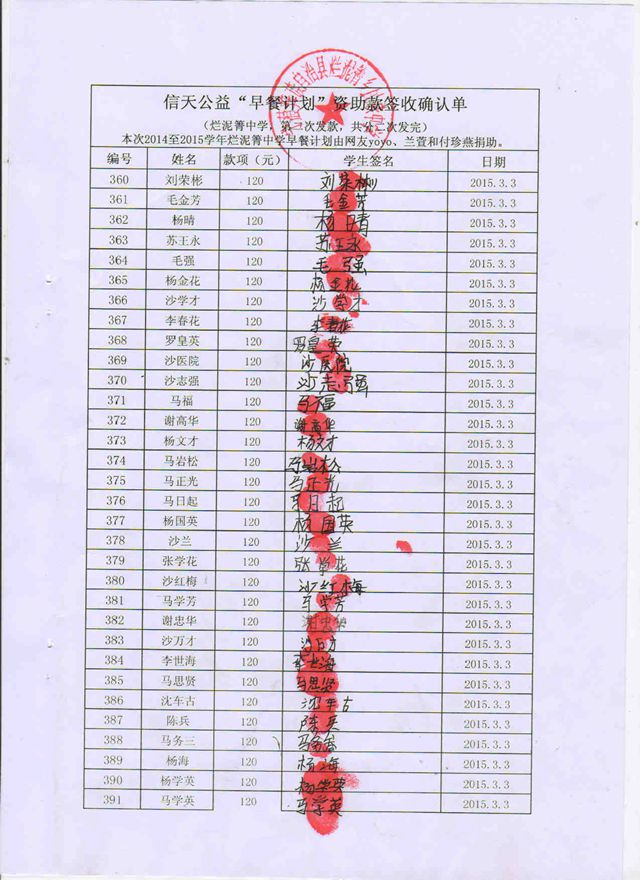 信天公益“早餐计划”资助款签收确认单
(烂泥箐中学，第 次发款，共分二次发完)
本次2014至2015学年烂泥箐中学早餐计划由网友yoyo、兰萱和付珍燕捐助。
编号 姓名 款项（元） 学生签名 日期
360 刘荣彬 120 刘荣彬 2015.3.3
361 毛金芳 120 毛金芳 2015.3.3
362 杨晴 120 杨晴 2015.3.3
363 苏王永 120 苏王永 2015.3.3
364 毛强 120 毛强 2015.3.3
365 杨金花 120 杨金花 2015.3.3
366 沙学才 120 沙学才 2015.3.3
367 李春花 120 李春花 2015.3.3
368 罗皇英 120 罗皇英 2015.3.3
369 沙医院 120 沙医院 2015.3.3
370 沙志强 120 沙志强 2015.3.3
371 马福 120 马福 2015.3.3
372 谢高华 120 谢高华 2015.3.3
373 杨文才 120 杨文才 2015.3.3
374 马岩松 120 马岩松 2015.3.3
375 马正光 120 马正光 2015.3.3
376 马日起 120 马日起 2015.3.3
377 杨国英 120 杨国英 2015.3.3
378 沙兰 120 沙兰 2015.3.3
379 张学花 120 张学花 2015.3.3
380 沙红梅 120 沙红梅 2015.3.3
381 马学芳 120 马学芳 2015.3.3
382 谢忠华 120 谢忠华 2015.3.3
383 沙万才 120 沙万才 2015.3.3
384 李世海 120 李世海 2015.3.3
385 马思贤 120 马思贤 2015.3.3
386 沈车古 120 沈车古 2015.3.3
387 陈兵 120 陈兵 2015.3.3
388 马务三 120 马务 2015.3.3
389 杨海 120 杨海 2015.3.3
390 杨学英 120 杨学英 2015.3.3
391 马学英 120 马学英 2015.3.3